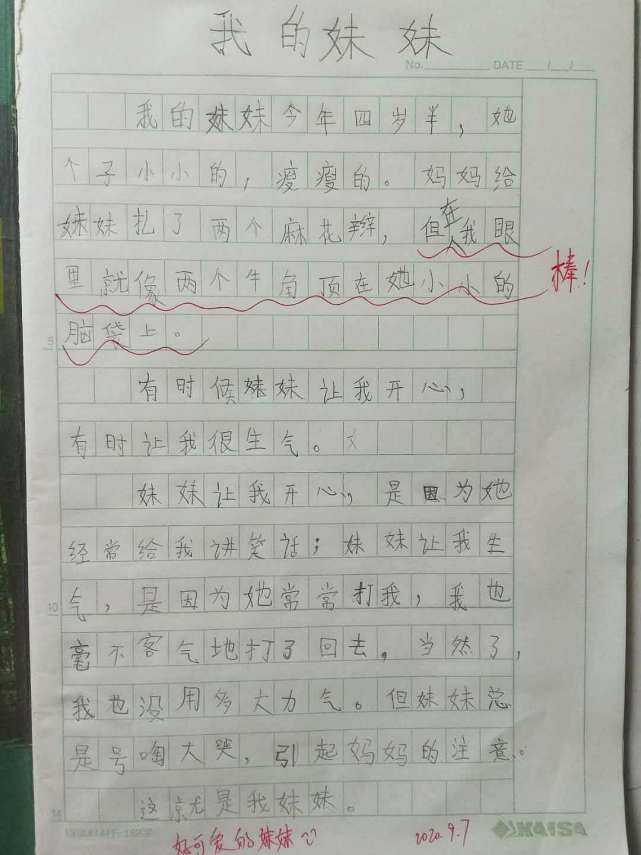 我的妹妹
No. DATE / /
我的妹妹今年四岁半，她
个子小小的，瘦瘦的。妈妈给
妹妹扎了两个麻花辫，但在我眼
里就像两个牛角顶在她小小的
棒！
脑袋上。
5
有时候妹妹让我开心，
有时让我很生气。
妹妹让我开心，是因为她
经常给我讲笑话；妹妹让我生
气，是因为她常常打我，我也
10
毫不客气地打了回去，当然了，
我也没用多大力气。但妹妹总
是号啕大哭，引起妈妈的注意。
这就是我妹妹。
15
好可爱的妹妹
2020.9.7
KAISA